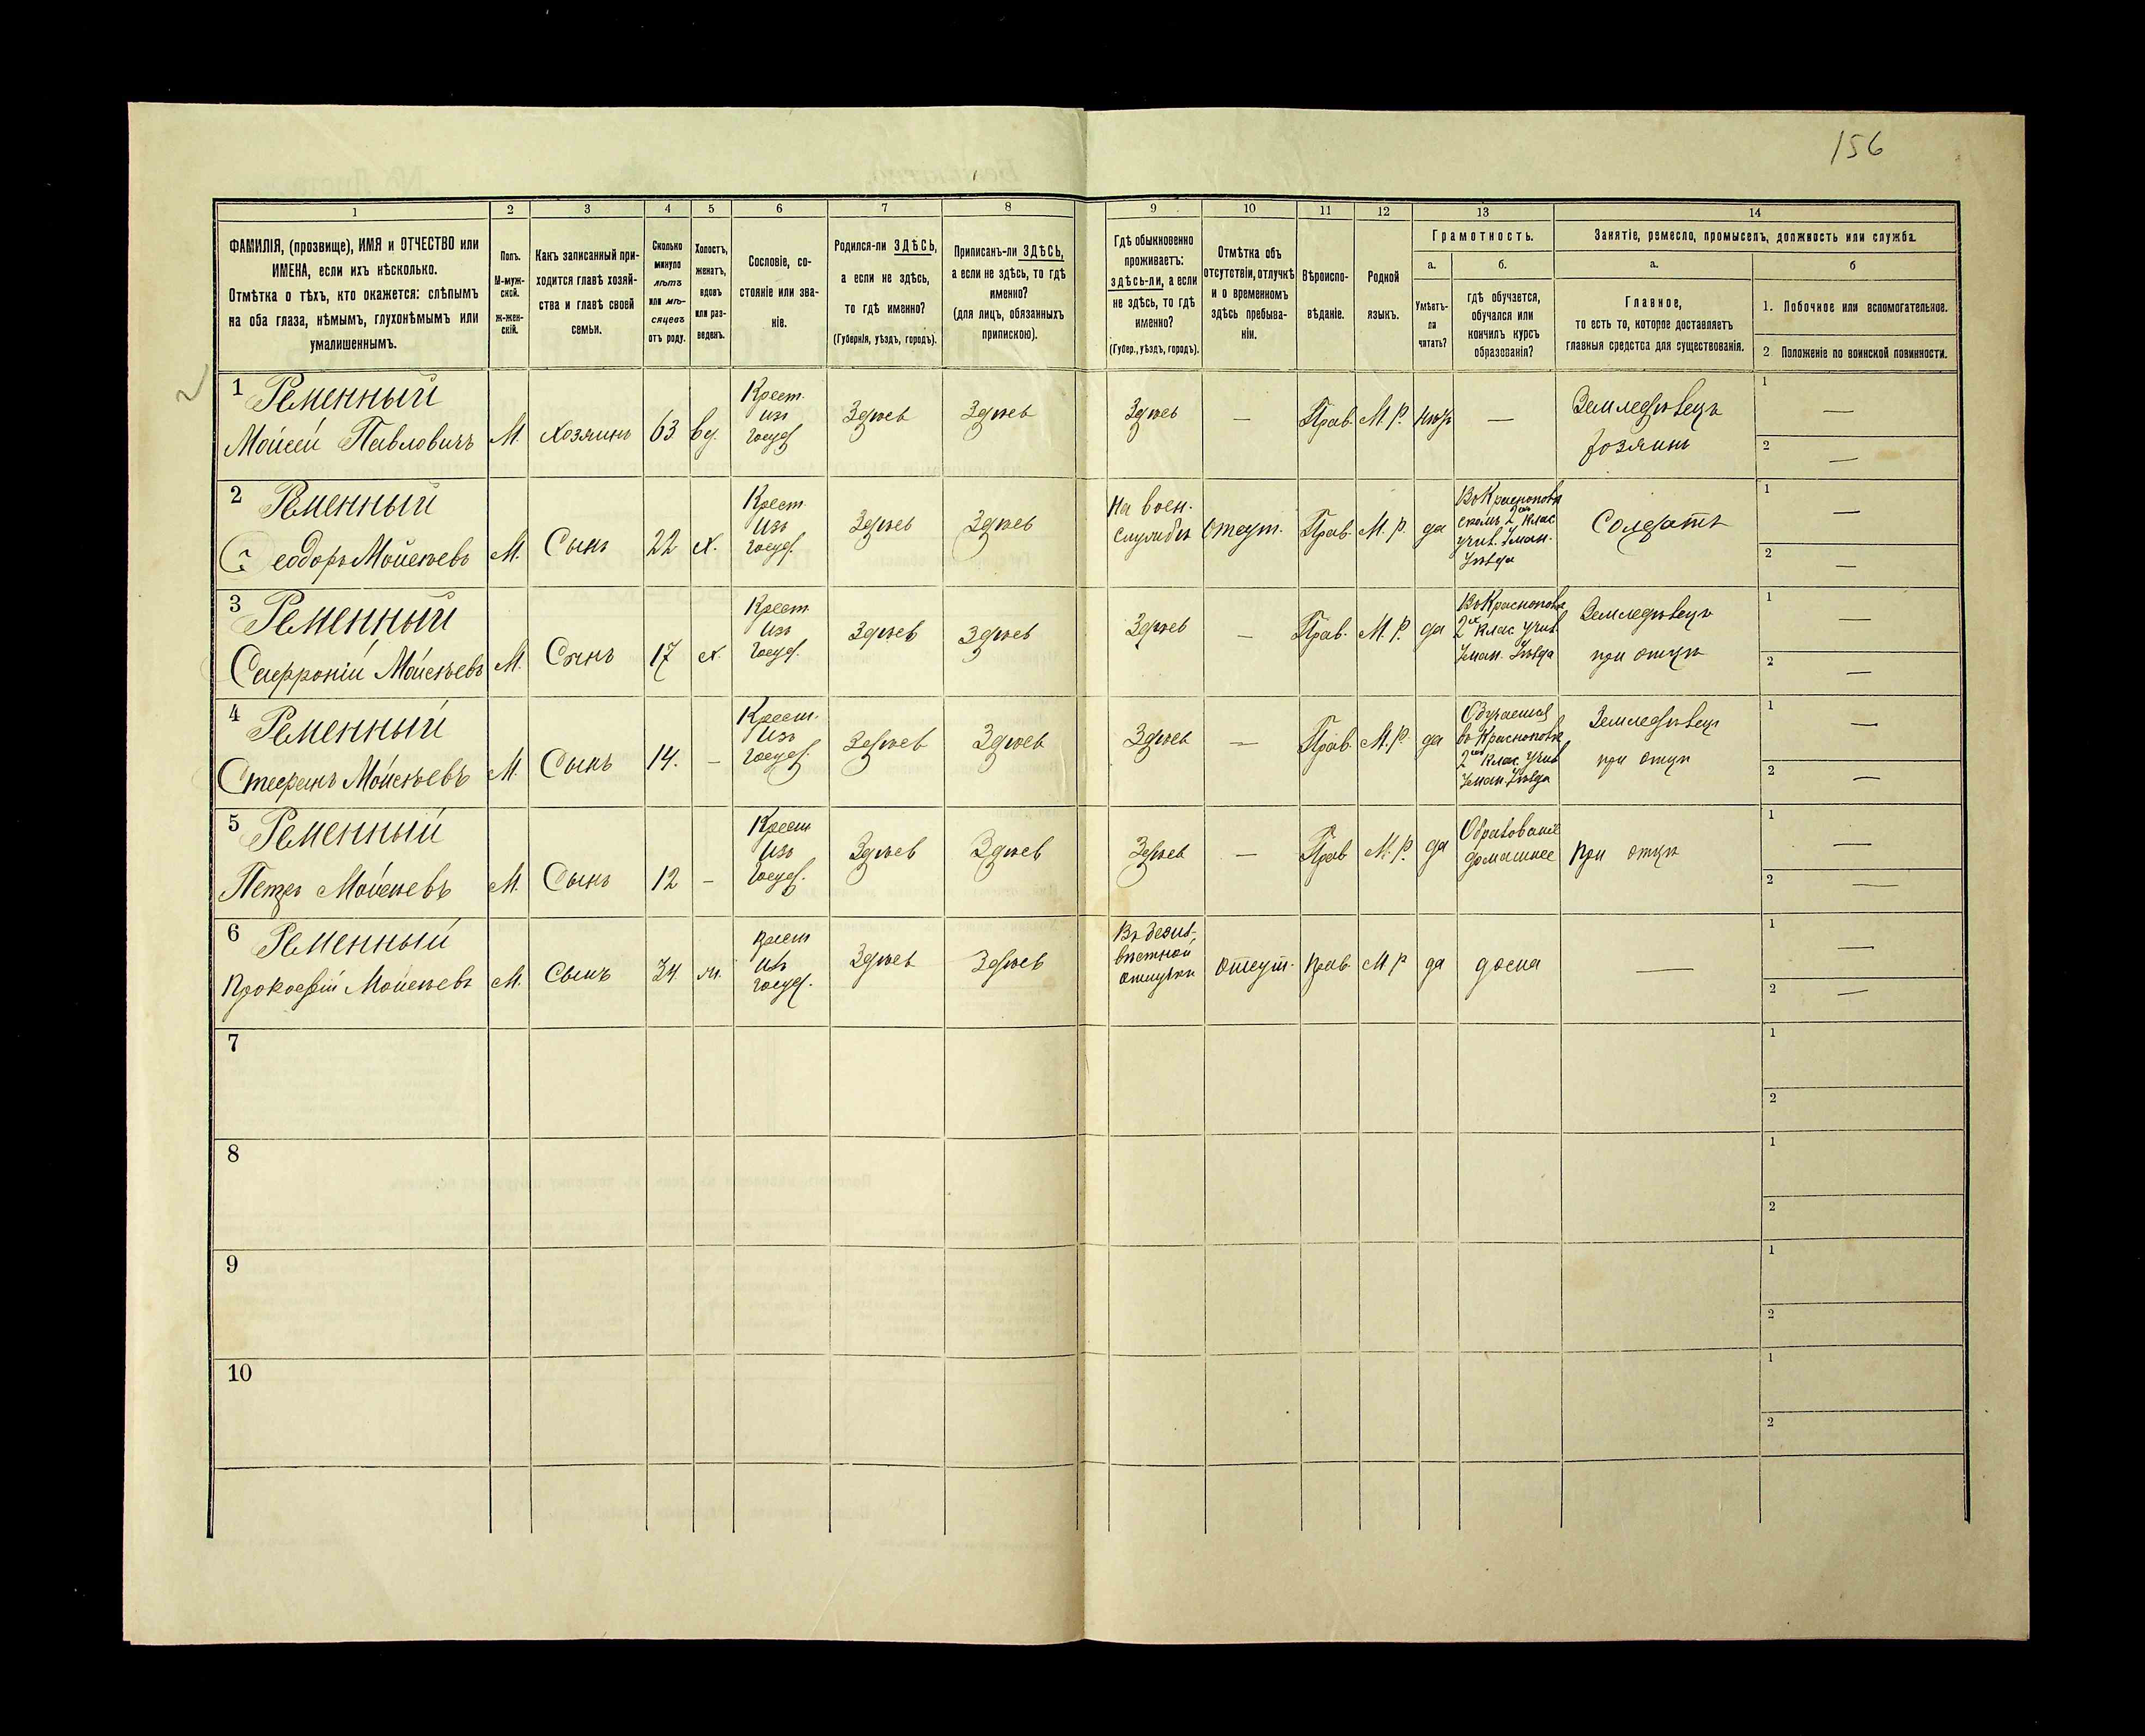 156
1
2
3
4
5
6
7
8
9
10
11
12
13
14
ФАМИЛІЯ, (прозвище), ИМЯ и ОТЧЕСТВО или
ИМЕНА, если ихъ нѣсколько.
Отмѣтка о тѣхъ, кто окажется: слѣпымъ
на оба глаза, нѣмымъ, глухонѣмымъ или
умалишеннымъ.
Полъ.
М-муж-
ской.
ж-жен-
скій.
Какъ записанный при-
ходится главѣ хозяй-
ства и главѣ своей
семьи.
Сколько
минуло
лѣтъ
или мѣ-
сяцевъ
отъ роду.
Холостъ,
женатъ,
вдовъ
или раз-
веденъ.
Сословіе, со-
стояніе или зва-
ніе.
Родился-ли ЗДѢСЬ,
а если не здѣсь,
то гдѣ именно?
(Губернія, уѣздъ, городъ).
Приписанъ-ли ЗДѢСЬ,
а если не здѣсь, то гдѣ
именно?
(для лицъ, обязанныхъ
припискою).
Гдѣ обыкновенно
проживаетъ:
здѣсь-ли, а если
не здѣсь, то гдѣ
именно?
(Губер., уѣздъ, городъ).
Отмѣтка объ
отсутствіи, отлучкѣ
и о временномъ
здѣсь пребыва-
ніи.
Вѣроиспо-
вѣданіе.
Родной
языкъ.
Грамотность.
а.
Умѣетъ-
ли
читать?
б.
гдѣ обучается,
обучался или
кончилъ курсъ
образованія?
Занятіе, ремесло, промыселъ, должность или служба.
а.
Главное,
то есть то, которое доставляетъ
главныя средства для существованія.
б
1. Побочное или вспомогательное.
2 Положеніе по воинской повинности.
1 Ременный
Мойсей Павловичъ
М.
Хозяинъ
63
вд.
Крест.
изъ
госуд.
Здѣсь
Здѣсь
Здѣсь
—
Прав.
М. Р.
нѣтъ
—
Земледѣлецъ
хозяинъ
1 —
2 —
2 Ременный
Ѳеодоръ Мойсеевъ
М.
Сынъ
22
х.
Крест.
изъ
госуд.
Здѣсь
Здѣсь
На воен.
службѣ
Отсут.
Прав.
М. Р.
да
2 клас
Уѣзда
Солдатъ
1 —
2 —
3 Ременный
Софроній Мойсеевъ
М.
Сынъ
17
х.
Крест.
изъ
госуд.
Здѣсь
Здѣсь
Здѣсь
—
Прав.
М. Р.
да
2х клас. учил.
Уман. Уѣзда
Земледѣлецъ
при отцѣ
1 —
2 —
4 Ременный
Стефанъ Мойсеевъ
М.
Сынъ
14.
—
Крест.
изъ
госуд.
Здѣсь
Здѣсь
Здѣсь
—
Прав.
М. Р.
да
Обучается
2 клас. учил
Уман. Уѣзда
Земледѣлецъ
при отцѣ
1 —
2 —
5 Ременный
Петръ Мойсеевъ
М.
Сынъ
12
—
Крест
изъ
госуд.
Здѣсь
Здѣсь
Здѣсь
—
Прав
М. Р.
да
Образованіе
домашнее
при отцѣ
1 —
2 —
6 Ременный
Прокофій Мойсеевъ
М.
Сынъ
34
ж.
крест
изъ
госуд.
Здѣсь
Здѣсь
Въ безиз-
вѣстной
отлучки
отсут.
прав.
М Р
да
дома
—
1 —
2 —
7
1
2
8
1
2
9
1
2
10
1
2